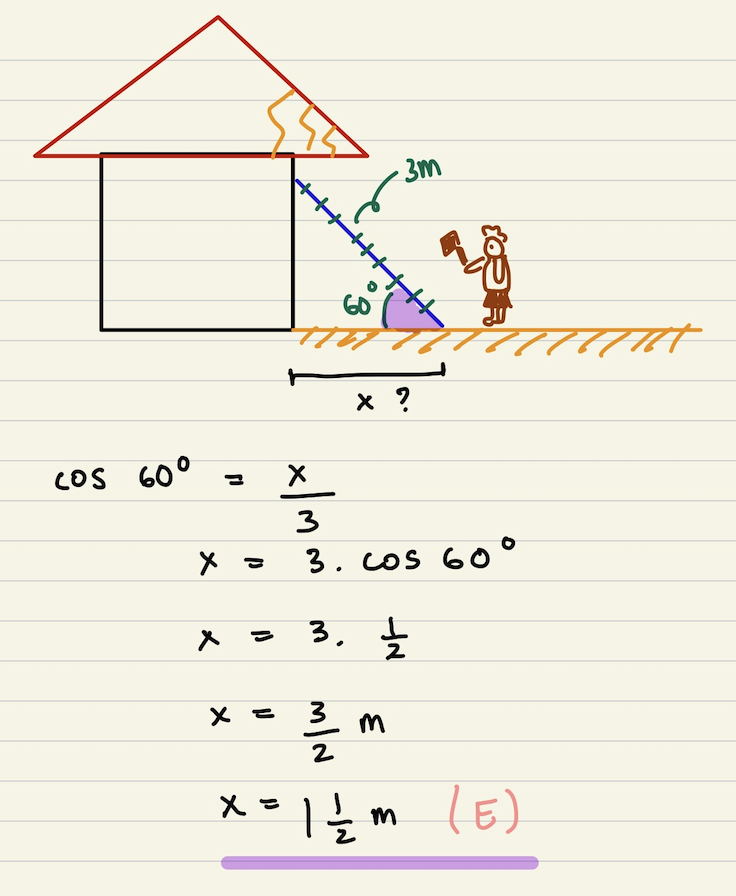 3m
60°
x ?
cos 60° = x/3
x = 3. cos 60°
x = 3. 1/2
x = 3/2 m
x = 1 1/2 m (E)